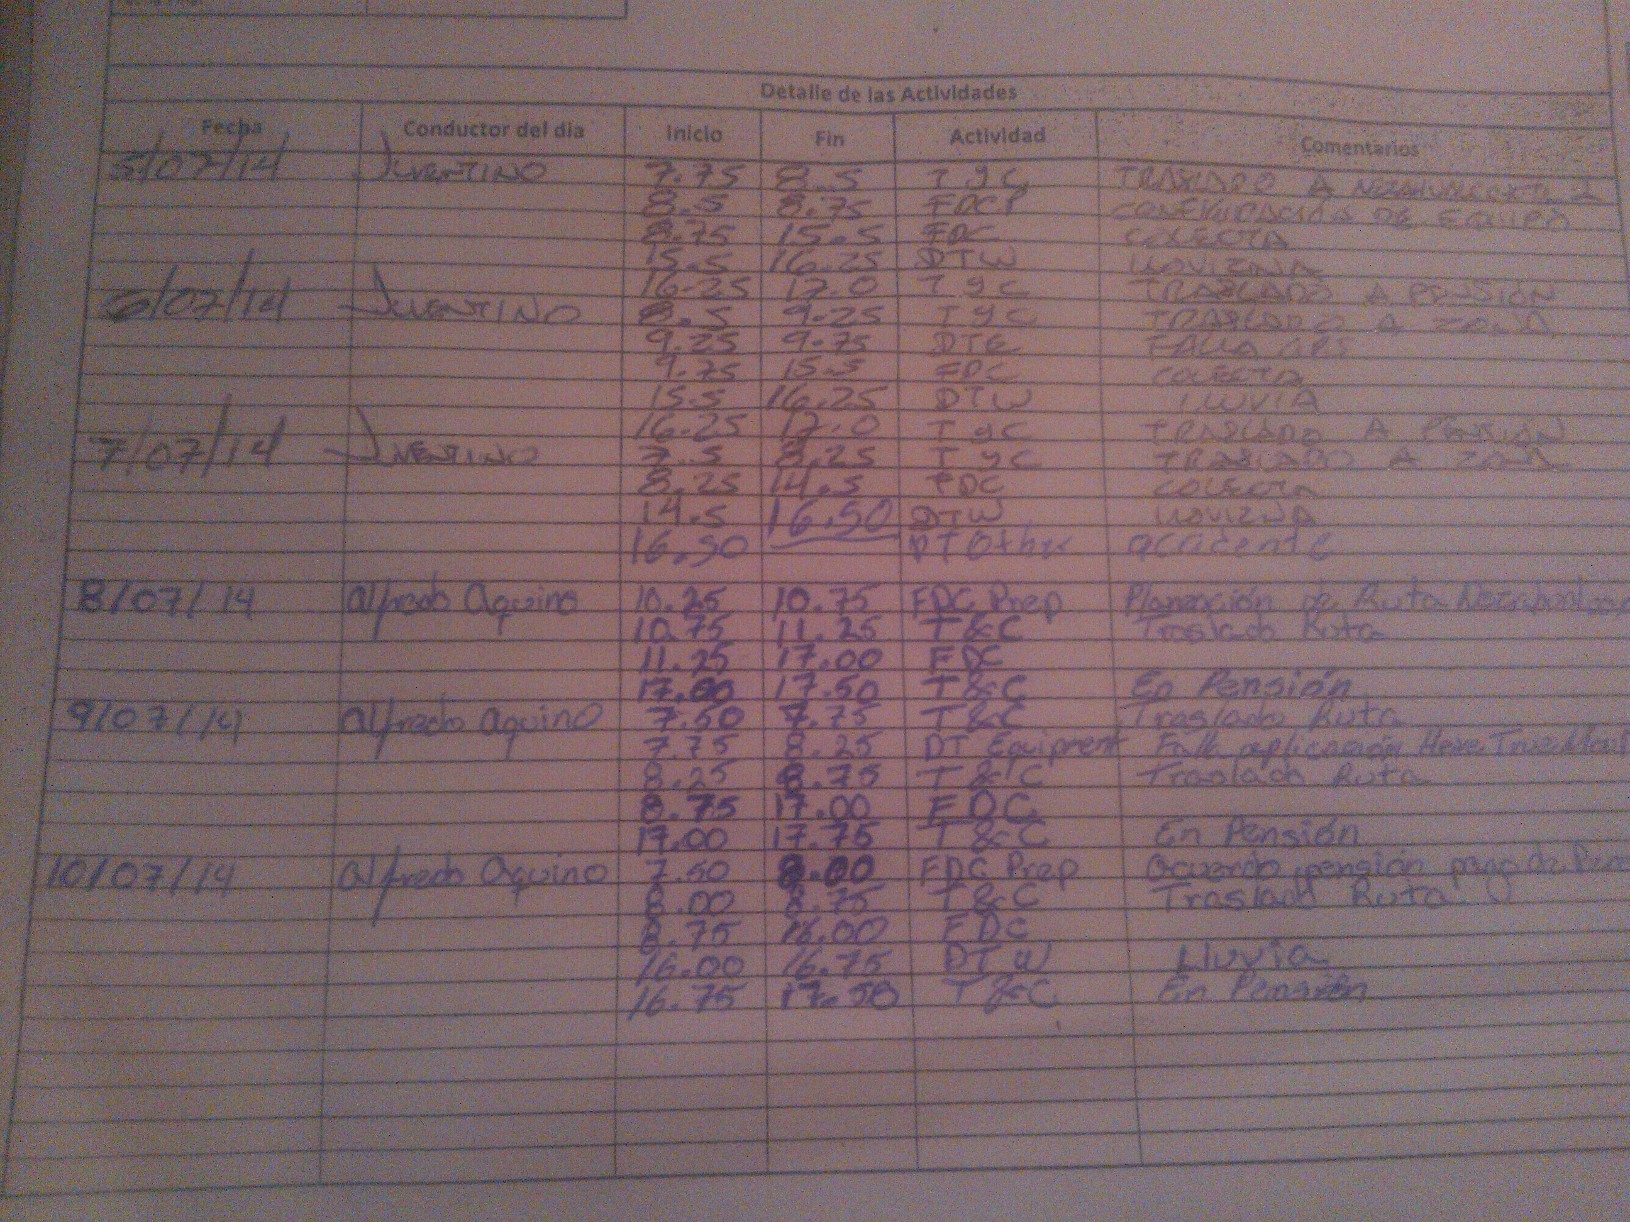 Detalle de las Actividades
Fecha Conductor del dia Inicio Fin Actividad Comentarios
5/07/14 JUVENTINO 7.75 8.5 T y C TRASLADO A 2
8.5 8.75 FDCP CONFIGURACION DE EQUIPO
8.75 15.5 FDC COLECTA
15.5 16.25 DTW LLOVIZNA
16.25 17.0 T y C TRASLADO A PENSIÓN
6/07/14 JUVENTINO 8.5 9.25 T y C TRASLADO A ZONA
9.25 9.75 DTE FALLA GPS
9.75 15.5 FDC COLECTA
15.5 16.25 DTW LLUVIA
16.25 17.0 T y C TRASLADO A PENSIÓN
7/07/14 JUVENTINO 7.5 8.25 T y C TRASLADO A ZONA
8.25 14.5 FDC COLECTA
14.5 16.50 DTW LLOVIZNA
16.50 DT Other accidente
8/07/14 Alfredo Aquino 10.25 10.75 FDC Prep Planeación de Ruta
10.75 11.25 T&C Traslado Ruta
11.25 17.00 FDC
17.00 17.50 T&C En Pensión
9/07/14 Alfredo Aquino 7.50 7.75 T&C Traslado Ruta
7.75 8.25 DT Equipment Falla aplicación Here True
8.25 8.75 T&C Traslado Ruta
8.75 17.00 FDC
17.00 17.75 T&C En Pensión
10/07/14 Alfredo Aquino 7.50 8.00 FDC Prep Acuerdo pensión pago de
8.00 8.75 T&C Traslado Ruta
8.75 16.00 FDC
16.00 16.75 DT W Lluvia
16.75 17.50 T&C En Pensión